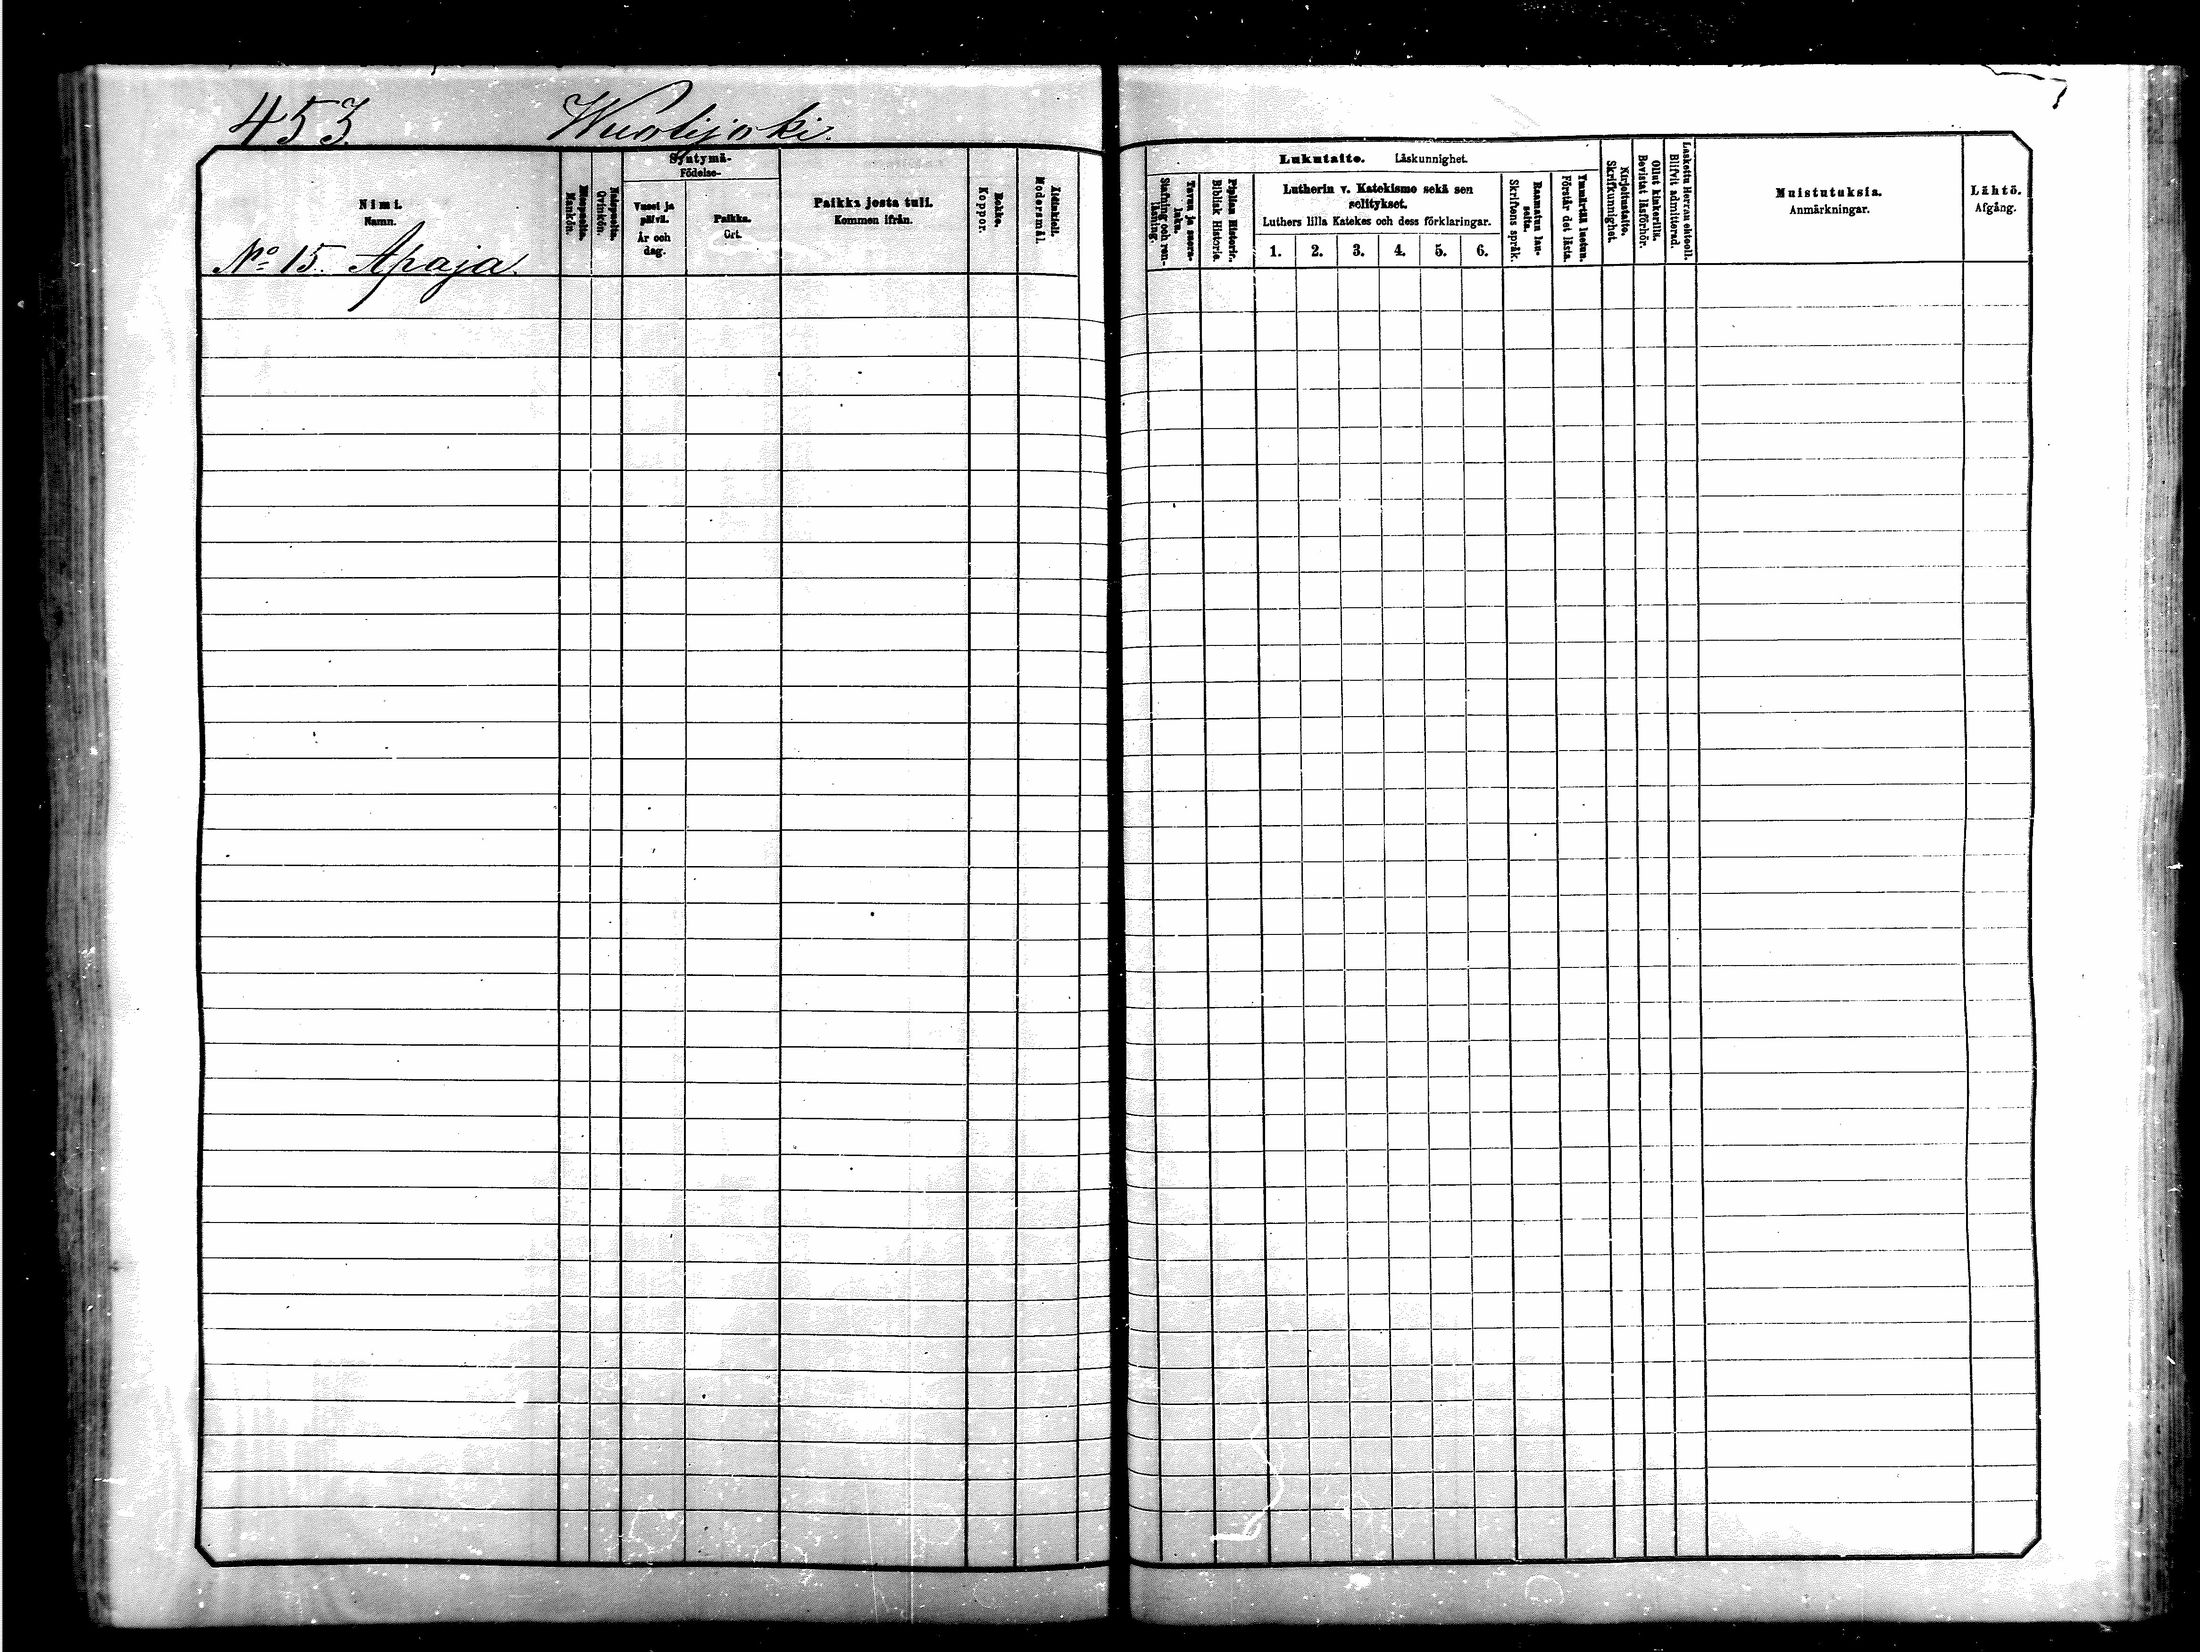 453. Wuolijoki.
Nimi.
Namn.
No 15. Apaja.
Miespuolia.
Mankön.
Naispuolia.
Qvinkön.
Syntymä-
Födelse-
Vuosi ja
päivä.
År och
dag.
Paikka.
Ort.
Paikka josta tuli.
Kommen ifrån.
Rokko.
Koppor.
Äidinkieli.
Modersmål.
Lukutaito. Läskunnighet.
Tavuu ja suora-
luku.
Stafning och ren-
läsning.
Piplian Historie.
Biblisk Historie.
Lutherin v. Katekismo sekä sen
selitykset.
Luthers lilla Katekes och dess förklaringar.
1. 2. 3. 4. 5. 6.
Raamatun lau-
seita.
Skriftens språk.
Ymmärtää luetun.
Förstår det lästa.
Kirjoitustaito.
Skrifkunnighet.
Ollut kinkerillä.
Bevistat läsförhör.
Laskettu Herran ehtooll.
Blifvit admitterad.
Muistutuksia.
Anmärkningar.
Lähtö.
Afgång.